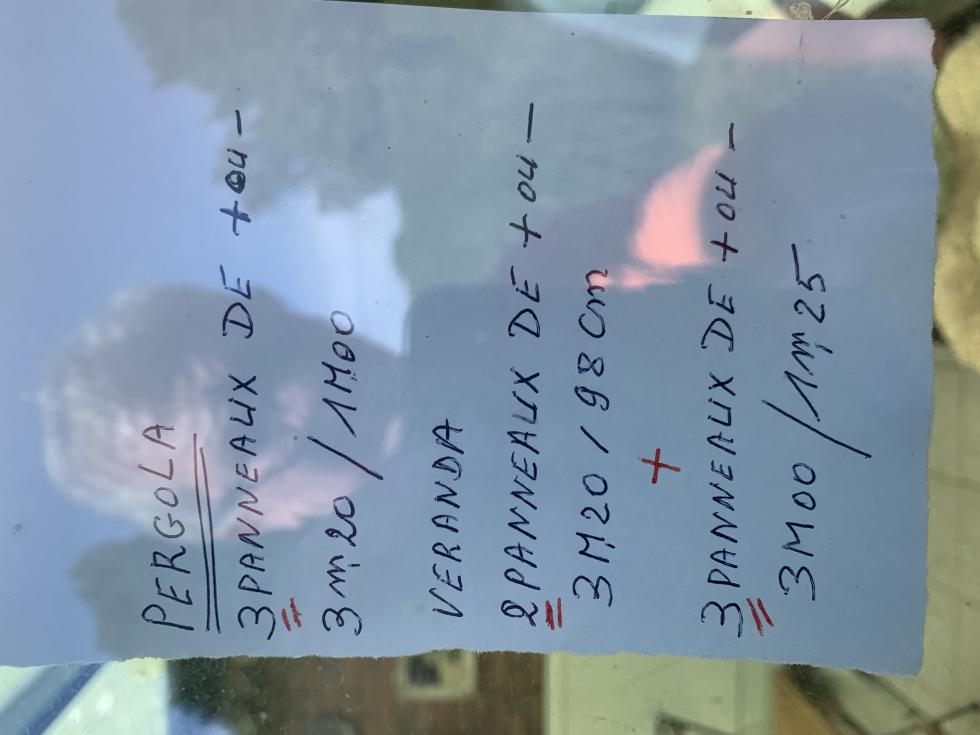 PERGOLA
3 PANNEAUX DE + ou -
3 m, 20 / 1 M, 00
VERANDA
2 PANNEAUX DE + ou -
3 M, 20 / 98 Cm
+
3 PANNEAUX DE + ou -
3 M 00 / 1 m, 25